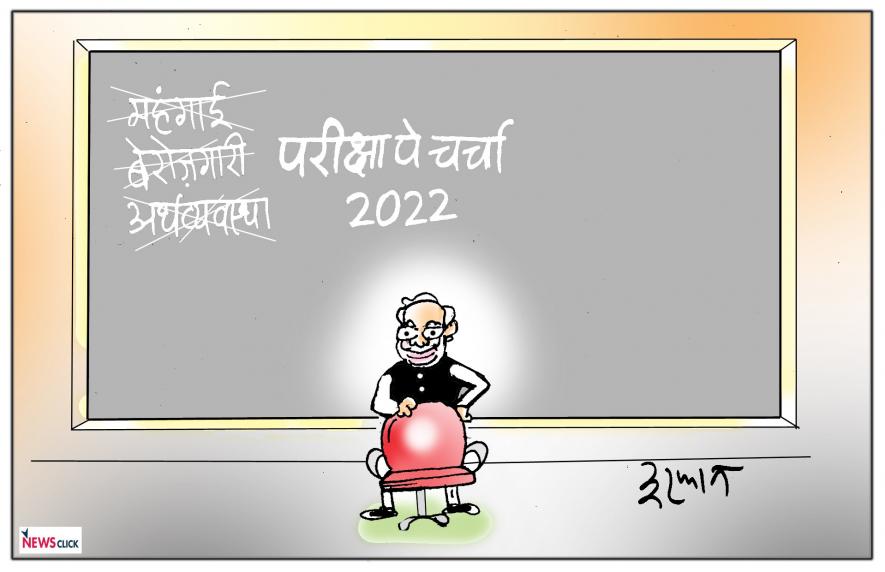 महंगाई
बेरोज़गारी
अर्थव्यवस्था
परीक्षा पे चर्चा
2022
इरफ़ान
NEWSCLICK